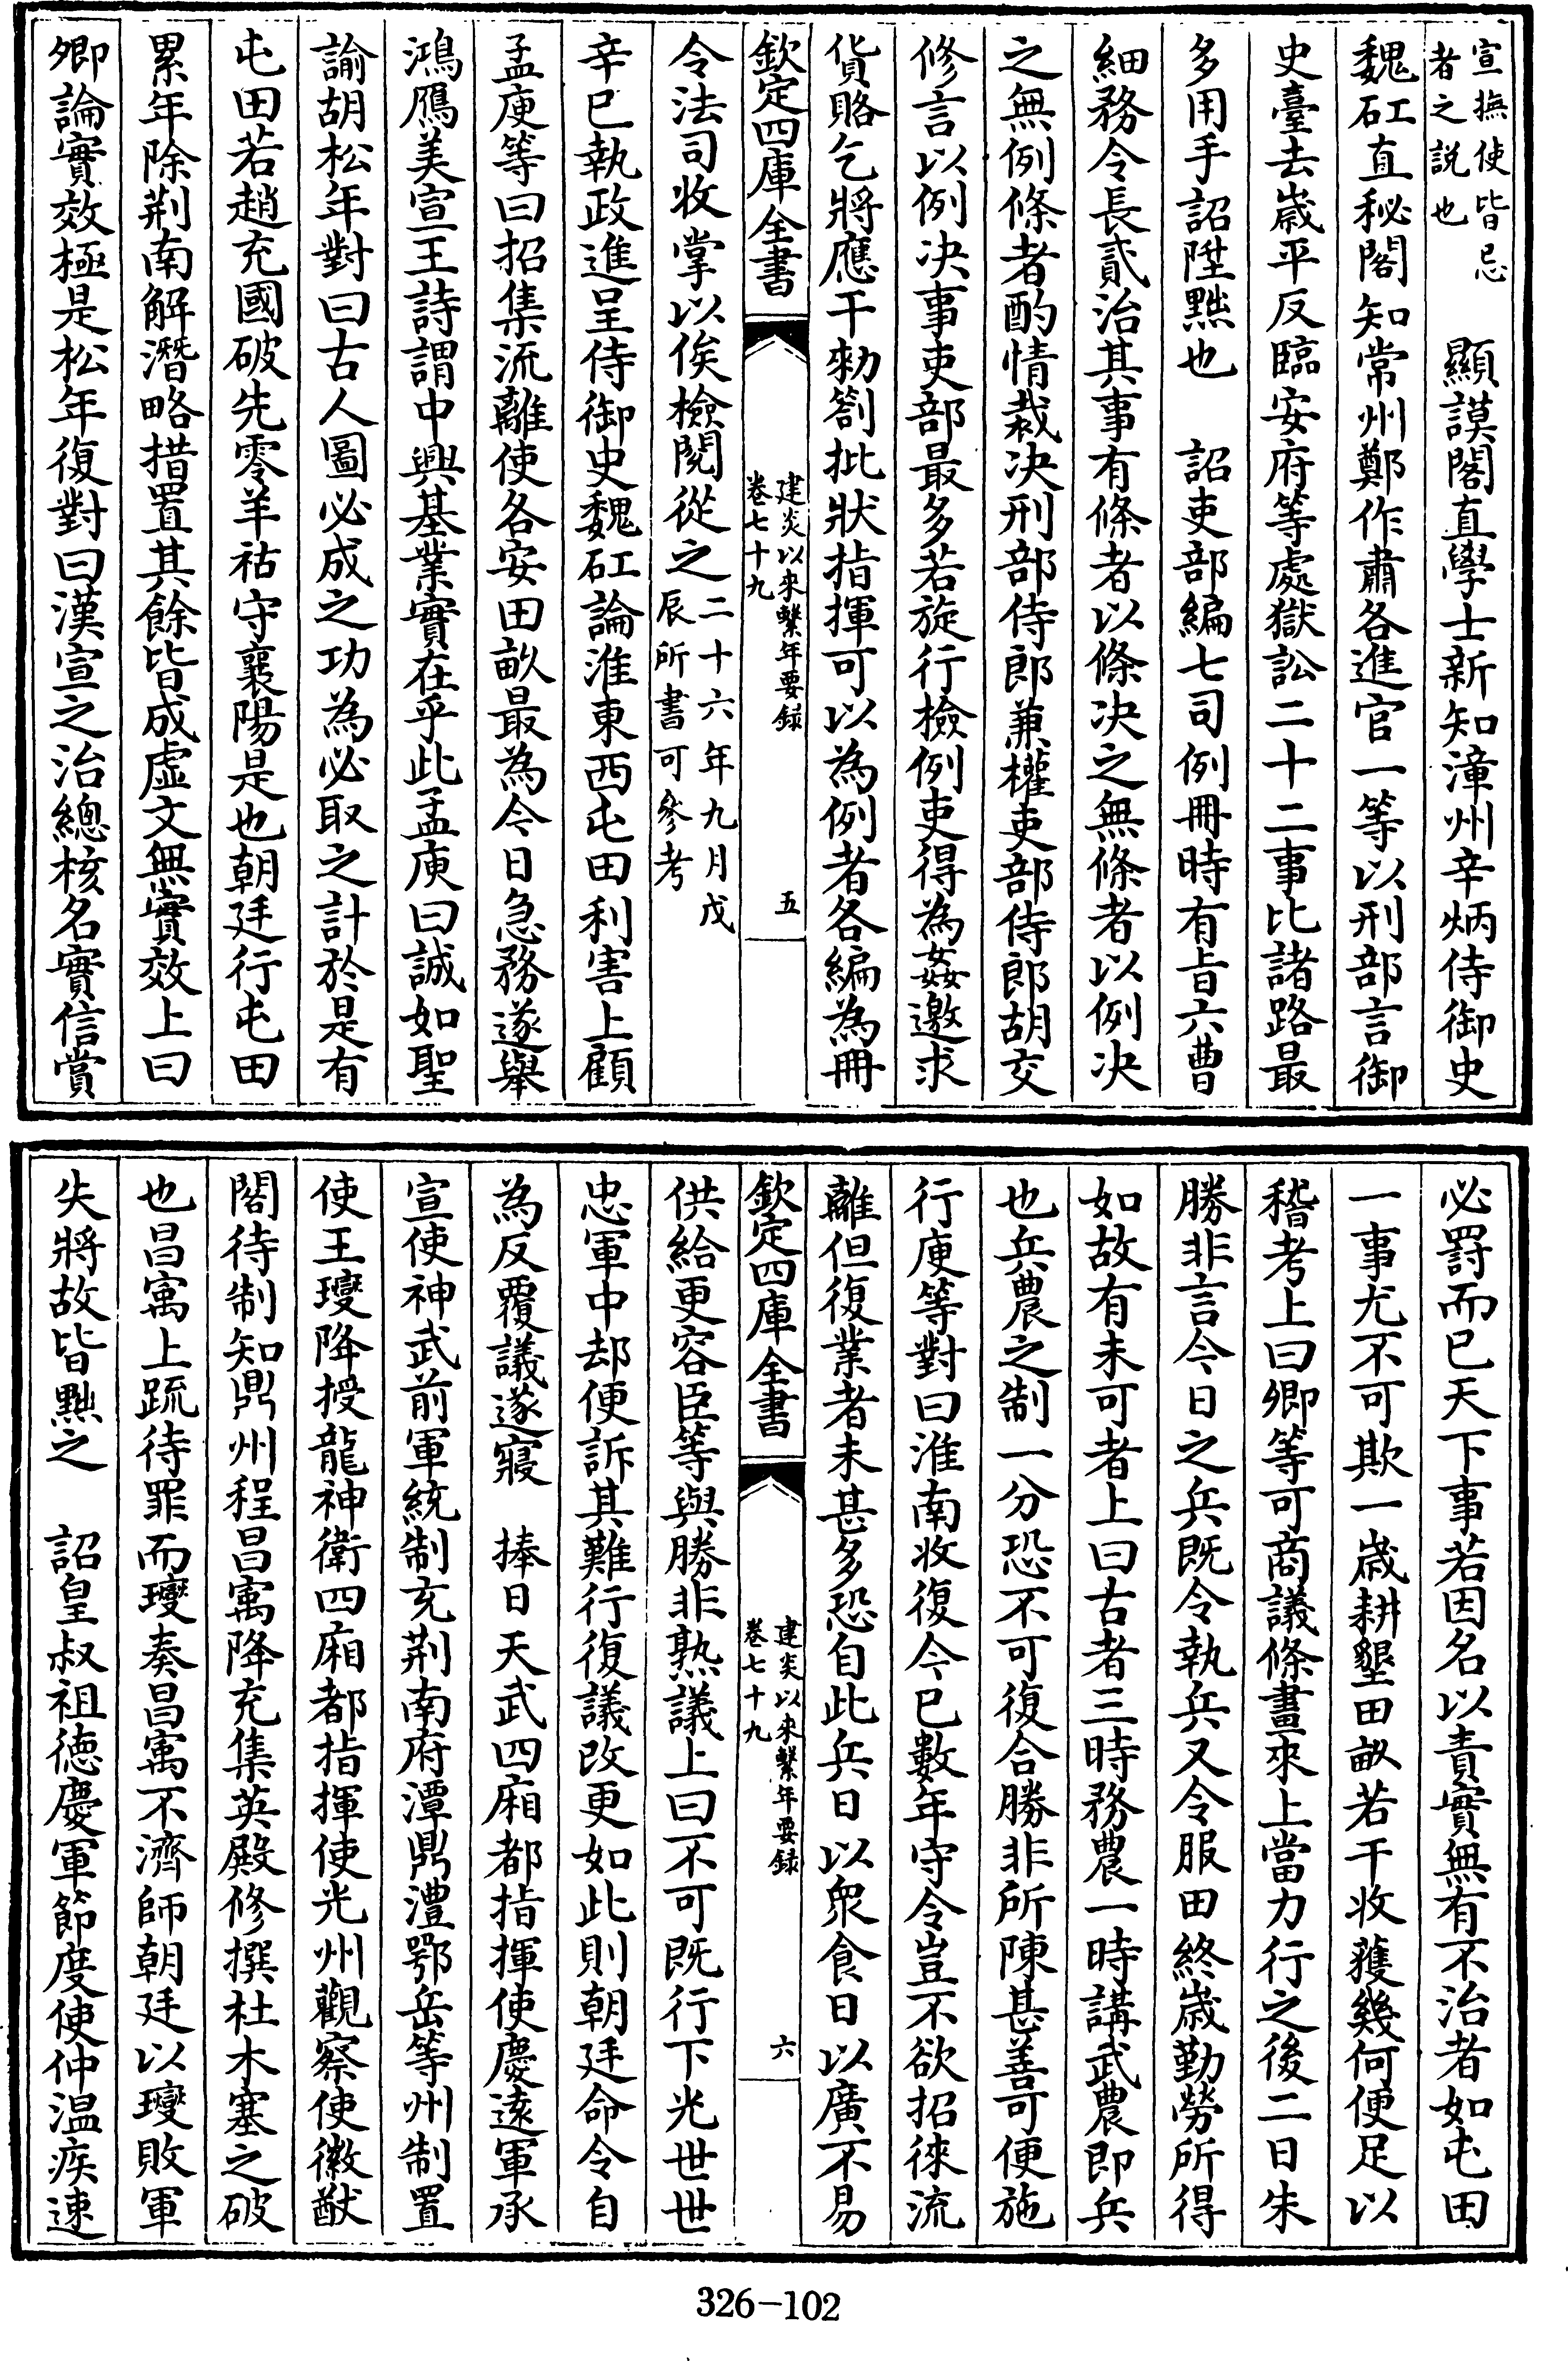 宣撫使皆忌
者之説也　　顯謨閣直學士新知漳州辛炳侍御史
魏矼直秘閣知常州鄭作肅各進官一等以刑部言御
史臺去歲平反臨安府等處獄訟二十二事比諸路最
多用手詔陞黜也　詔吏部編七司例冊時有旨六曹
細務令長貳治其事有條者以條决之無條者以例决
之無例條者酌情裁决刑部侍郎兼權吏部侍郎胡交
修言以例决事吏部最多若旋行檢例吏得為姦邀求
貨賂乞將應干勑劄批狀指揮可以為例者各編為冊
欽定四庫全書
建炎以來繫年要録
卷七十九
五
令法司收掌以俟檢閱從之二十六年九月戊
辰所書可參考
辛巳執政進呈侍御史魏矼論淮東西屯田利害上顧
孟庾等曰招集流離使各安田畝最為今日急務遂舉
鴻鴈美宣王詩謂中興基業實在乎此孟庾曰誠如聖
諭胡松年對曰古人圖必成之功為必取之計於是有
屯田若趙充國破先零羊祜守襄陽是也朝廷行屯田
累年除荆南解潛略措置其餘皆成虛文無實效上曰
卿論實效極是松年復對曰漢宣之治總核名實信賞
必罰而已天下事若因名以責實無有不治者如屯田
一事尤不可欺一歲耕墾田畝若干收穫幾何便足以
稽考上曰卿等可商議條畫來上當力行之後二日朱
勝非言今日之兵既令執兵又令服田終歲勤勞所得
如故有未可者上曰古者三時務農一時講武農即兵
也兵農之制一分恐不可復合勝非所陳甚善可便施
行庾等對曰淮南收復今已數年守令豈不欲招徠流
離但復業者未甚多恐自此兵日以眾食日以廣不易
欽定四庫全書
建炎以來繫年要録
卷七十九
六
供給更容臣等與勝非熟議上曰不可既行下光世世
忠軍中却便訴其難行復議改更如此則朝廷命令自
為反覆議遂寢　捧日天武四廂都指揮使慶逺軍承
宣使神武前軍統制充荆南府潭鼎澧鄂岳等州制置
使王𤫉降授龍神衛四廂都指揮使光州觀察使徽猷
閣待制知鼎州程昌㝢降充集英殿修撰杜木塞之破
也昌㝢上疏待罪而𤫉奏昌㝢不濟師朝廷以𤫉敗軍
失將故皆黜之　詔皇叔祖徳慶軍節度使仲温疾速
326-102